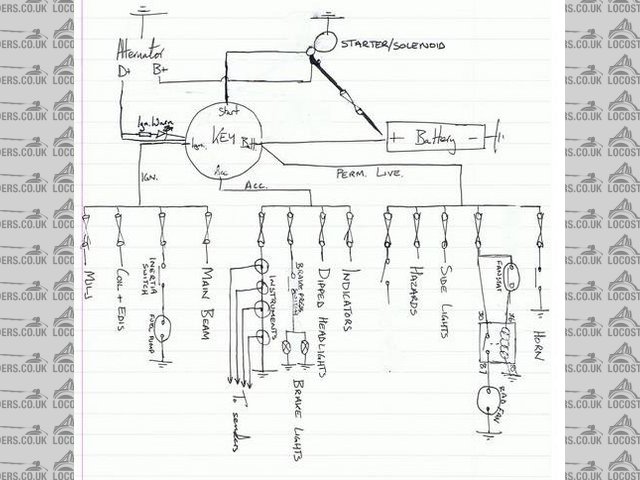 Alternator
D+ B+
STARTER/SOLENOID
Ign. Warn
Start
KEY
Ign.
Batt.
Acc
+ Battery -
IGN.
ACC.
PERM. LIVE.
MULLS
COIL + EDIS
INERTIA SWITCH
FUEL PUMP
MAIN BEAM
INSTRUMENTS
To senders
BRAKE LIGHTS
DIPPED HEADLIGHTS
INDICATORS
HAZARDS
SIDE LIGHTS
FANSTAT
30
86
87
RAD FAN
HORN
DERS.CO.UK LOCOST